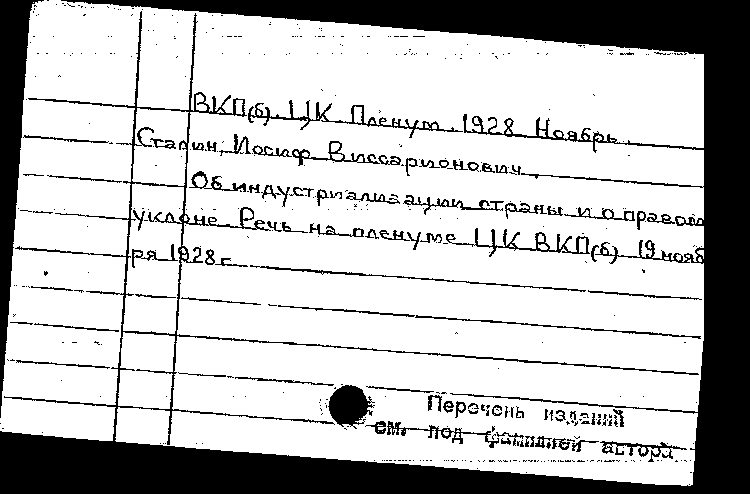 ВКП(б). ЦК. Пленум. 1928. Ноябрь.
Сталин, Иосиф Виссарионович.
Об индустриализации страны и о правом
уклоне. Речь на пленуме ЦК ВКП(б) 19 нояб
ря 1928 г.
Перечень изданий
см. под фамилией автора